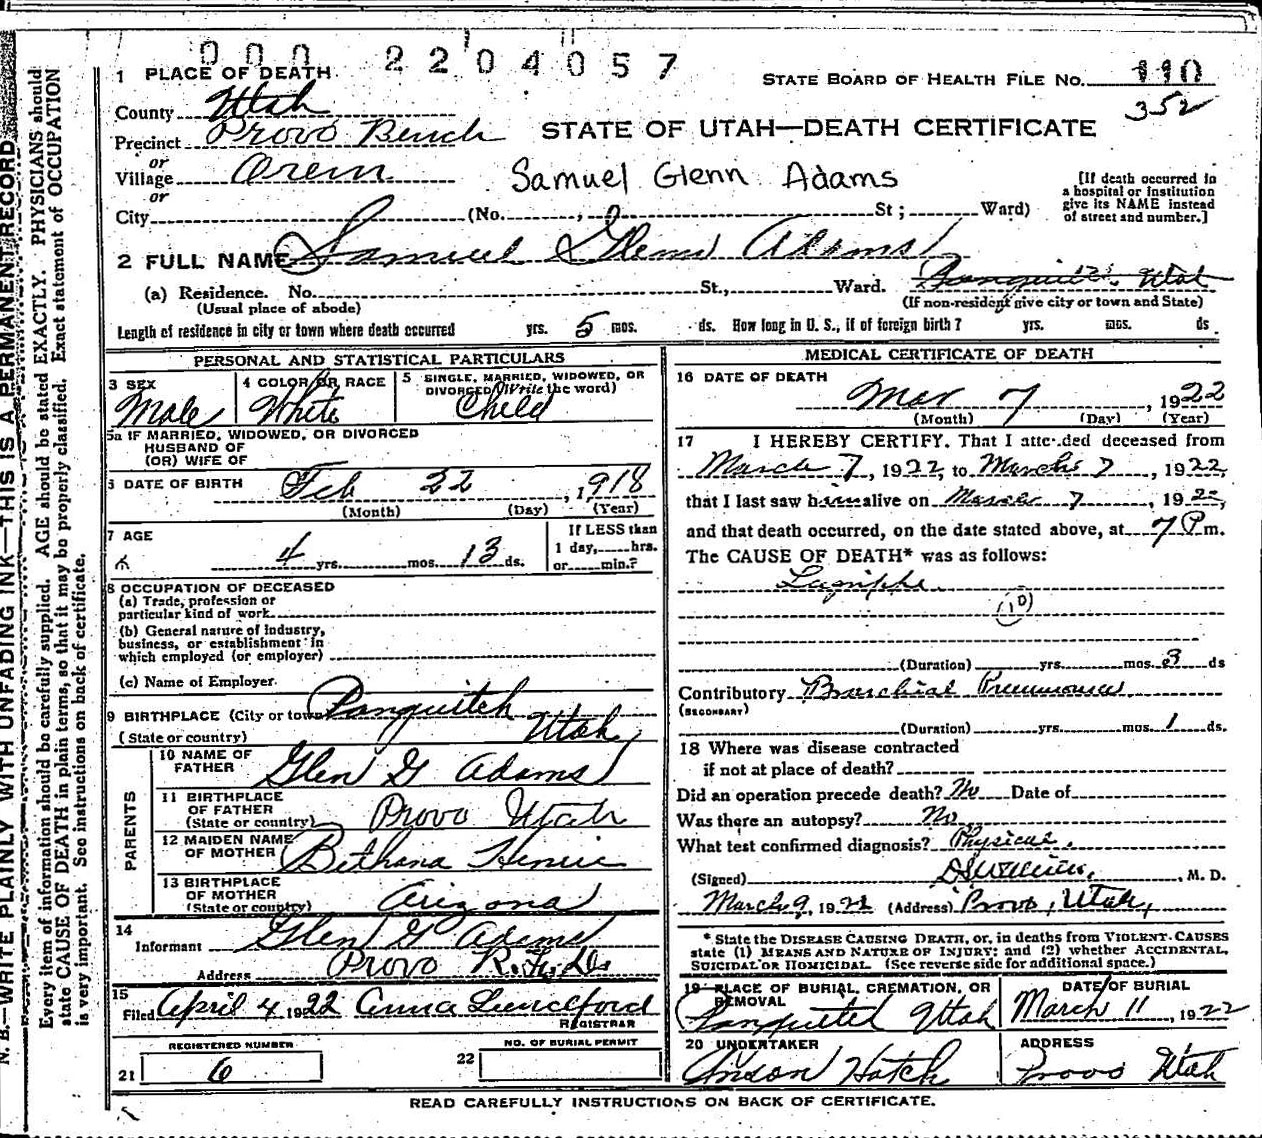 000 2204057
1 PLACE OF DEATH
STATE BOARD OF HEALTH FILE NO. 110
352
County Utah
Precinct Provo Bench
STATE OF UTAH—DEATH CERTIFICATE
or
Village Orem
Samuel Glenn Adams
[If death occurred in
a hospital or institution
give its NAME instead
of street and number.]
or
City (No. , St ; Ward)
2 FULL NAME Samuel Glenn Adams
(a) Residence. No. St., Ward. Panguitch, Utah
(Usual place of abode) (If non-resident give city or town and State)
Length of residence in city or town where death occurred yrs. 5 mos. ds. How long in U. S., if of foreign birth? yrs. mos. ds
PERSONAL AND STATISTICAL PARTICULARS
3 SEX
Male
4 COLOR OR RACE
White
5 SINGLE, MARRIED, WIDOWED, OR
DIVORCED (Write the word)
Child
5a IF MARRIED, WIDOWED, OR DIVORCED
HUSBAND OF
(OR) WIFE OF
6 DATE OF BIRTH Feb 22, 1918
(Month) (Day) (Year)
7 AGE
4 yrs. mos. 13 ds.
If LESS than
1 day, hrs.
or min.?
8 OCCUPATION OF DECEASED
(a) Trade, profession or
particular kind of work
(b) General nature of industry,
business, or establishment in
which employed (or employer)
(c) Name of Employer
9 BIRTHPLACE (City or town) Panguitch
(State or country) Utah
PARENTS
10 NAME OF
FATHER Glen G Adams
11 BIRTHPLACE
OF FATHER
(State or country) Provo Utah
12 MAIDEN NAME
OF MOTHER Bethana Henrie
13 BIRTHPLACE
OF MOTHER
(State or country) Arizona
14
Informant Glen G Adams
Address Provo R.F.D.
15
Filed April 4 1922 Anna Lunceford
REGISTRAR
REGISTERED NUMBER
21 6
NO. OF BURIAL PERMIT
22
MEDICAL CERTIFICATE OF DEATH
16 DATE OF DEATH
Mar 7, 1922
(Month) (Day) (Year)
17 I HEREBY CERTIFY, That I attended deceased from
March 7, 1922, to March 7, 1922,
that I last saw him alive on March 7, 1922,
and that death occurred, on the date stated above, at 7 P m.
The CAUSE OF DEATH* was as follows:
Lagrippe
(10)
(Duration) yrs. mos. 3 ds
Contributory Bronchial Pneumonia
(SECONDARY)
(Duration) yrs. mos. 1 ds.
18 Where was disease contracted
if not at place of death?
Did an operation precede death? No Date of
Was there an autopsy? No
What test confirmed diagnosis? Physical.
(Signed) , M. D.
March 9, 1922 (Address) Provo, Utah,
* State the DISEASE CAUSING DEATH, or, in deaths from VIOLENT CAUSES
state (1) MEANS AND NATURE OF INJURY; and (2) whether ACCIDENTAL,
SUICIDAL OR HOMICIDAL. (See reverse side for additional space.)
19 PLACE OF BURIAL, CREMATION, OR
REMOVAL
Panguitch Utah
DATE OF BURIAL
March 11, 1922
20 UNDERTAKER
Anson Hatch
ADDRESS
Provo Utah
READ CAREFULLY INSTRUCTIONS ON BACK OF CERTIFICATE.
N. B.—WRITE PLAINLY WITH UNFADING INK—THIS IS A PERMANENT RECORD
Every item of information should be carefully supplied. AGE should be stated EXACTLY. PHYSICIANS should
state CAUSE OF DEATH in plain terms, so that it may be properly classified. Exact statement of OCCUPATION
is very important. See instructions on back of certificate.